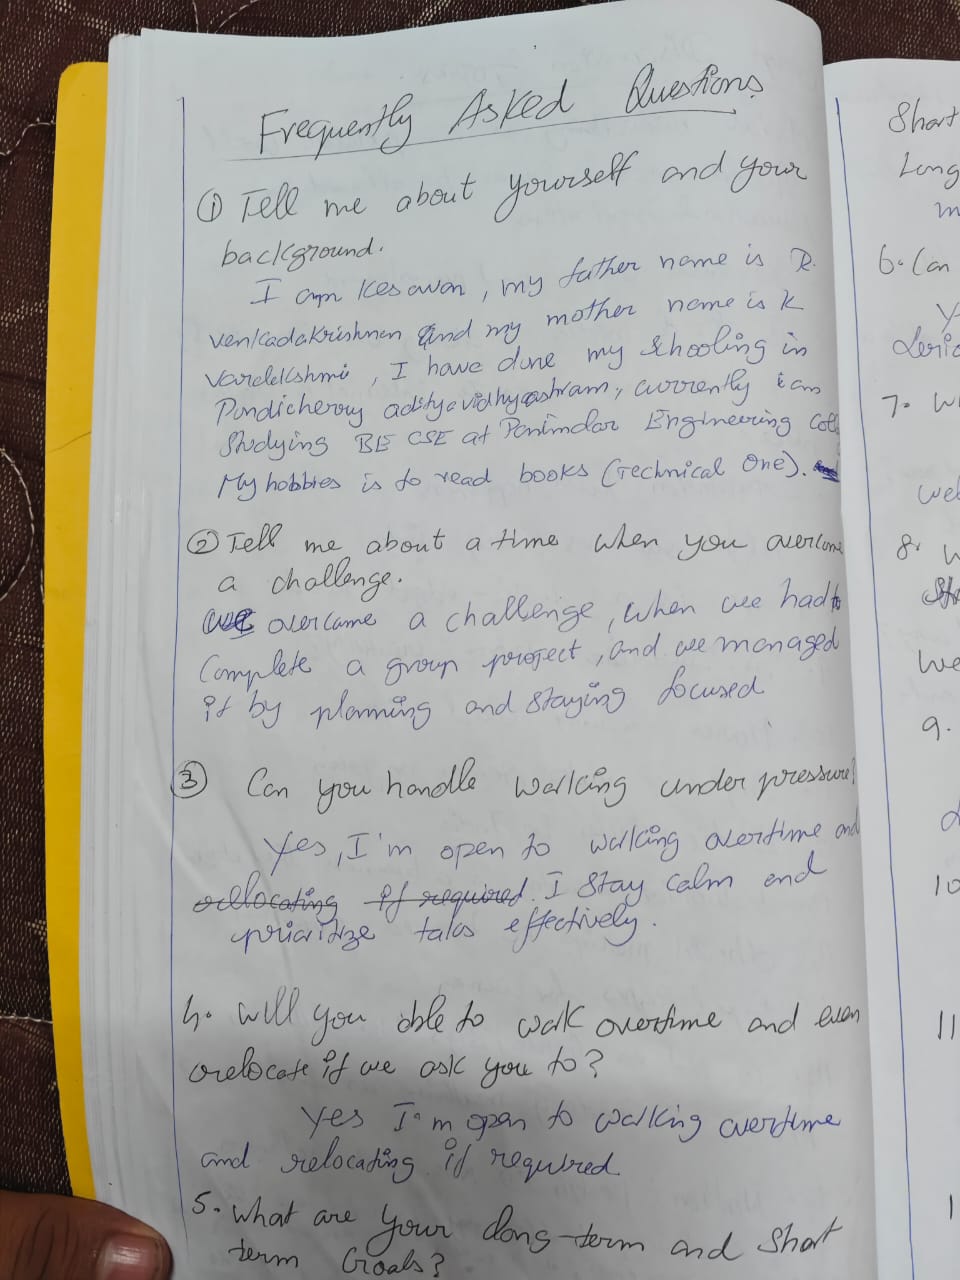 Frequently Asked Questions
① Tell me about yourself and your
background.
I am Kesavan, my father name is R.
venkadakrishnan and my mother name is K
Varalakshmi, I have done my schooling in
Pondicherry aditya vidhyashram, currently i am
Studying BE CSE at Panimalar Engineering Coll
My hobbies is to read books (Technical One).
② Tell me about a time when you overcome
a challenge.
we overcame a challenge, when we had to
Complete a group project, and we managed
it by planning and staying focused
③ Can you handle working under pressure?
Yes, I'm open to working overtime and
rellocating if required. I stay calm and
prioritize taks effectively.
4. Will you able to work overtime and even
relocate if we ask you to?
Yes I'm open to working overtime
and relocating if required
5. What are your long-term and short
term Goals?
Short
Long
m
6. Can
7. W
wel
8. W
we
9.
10
11